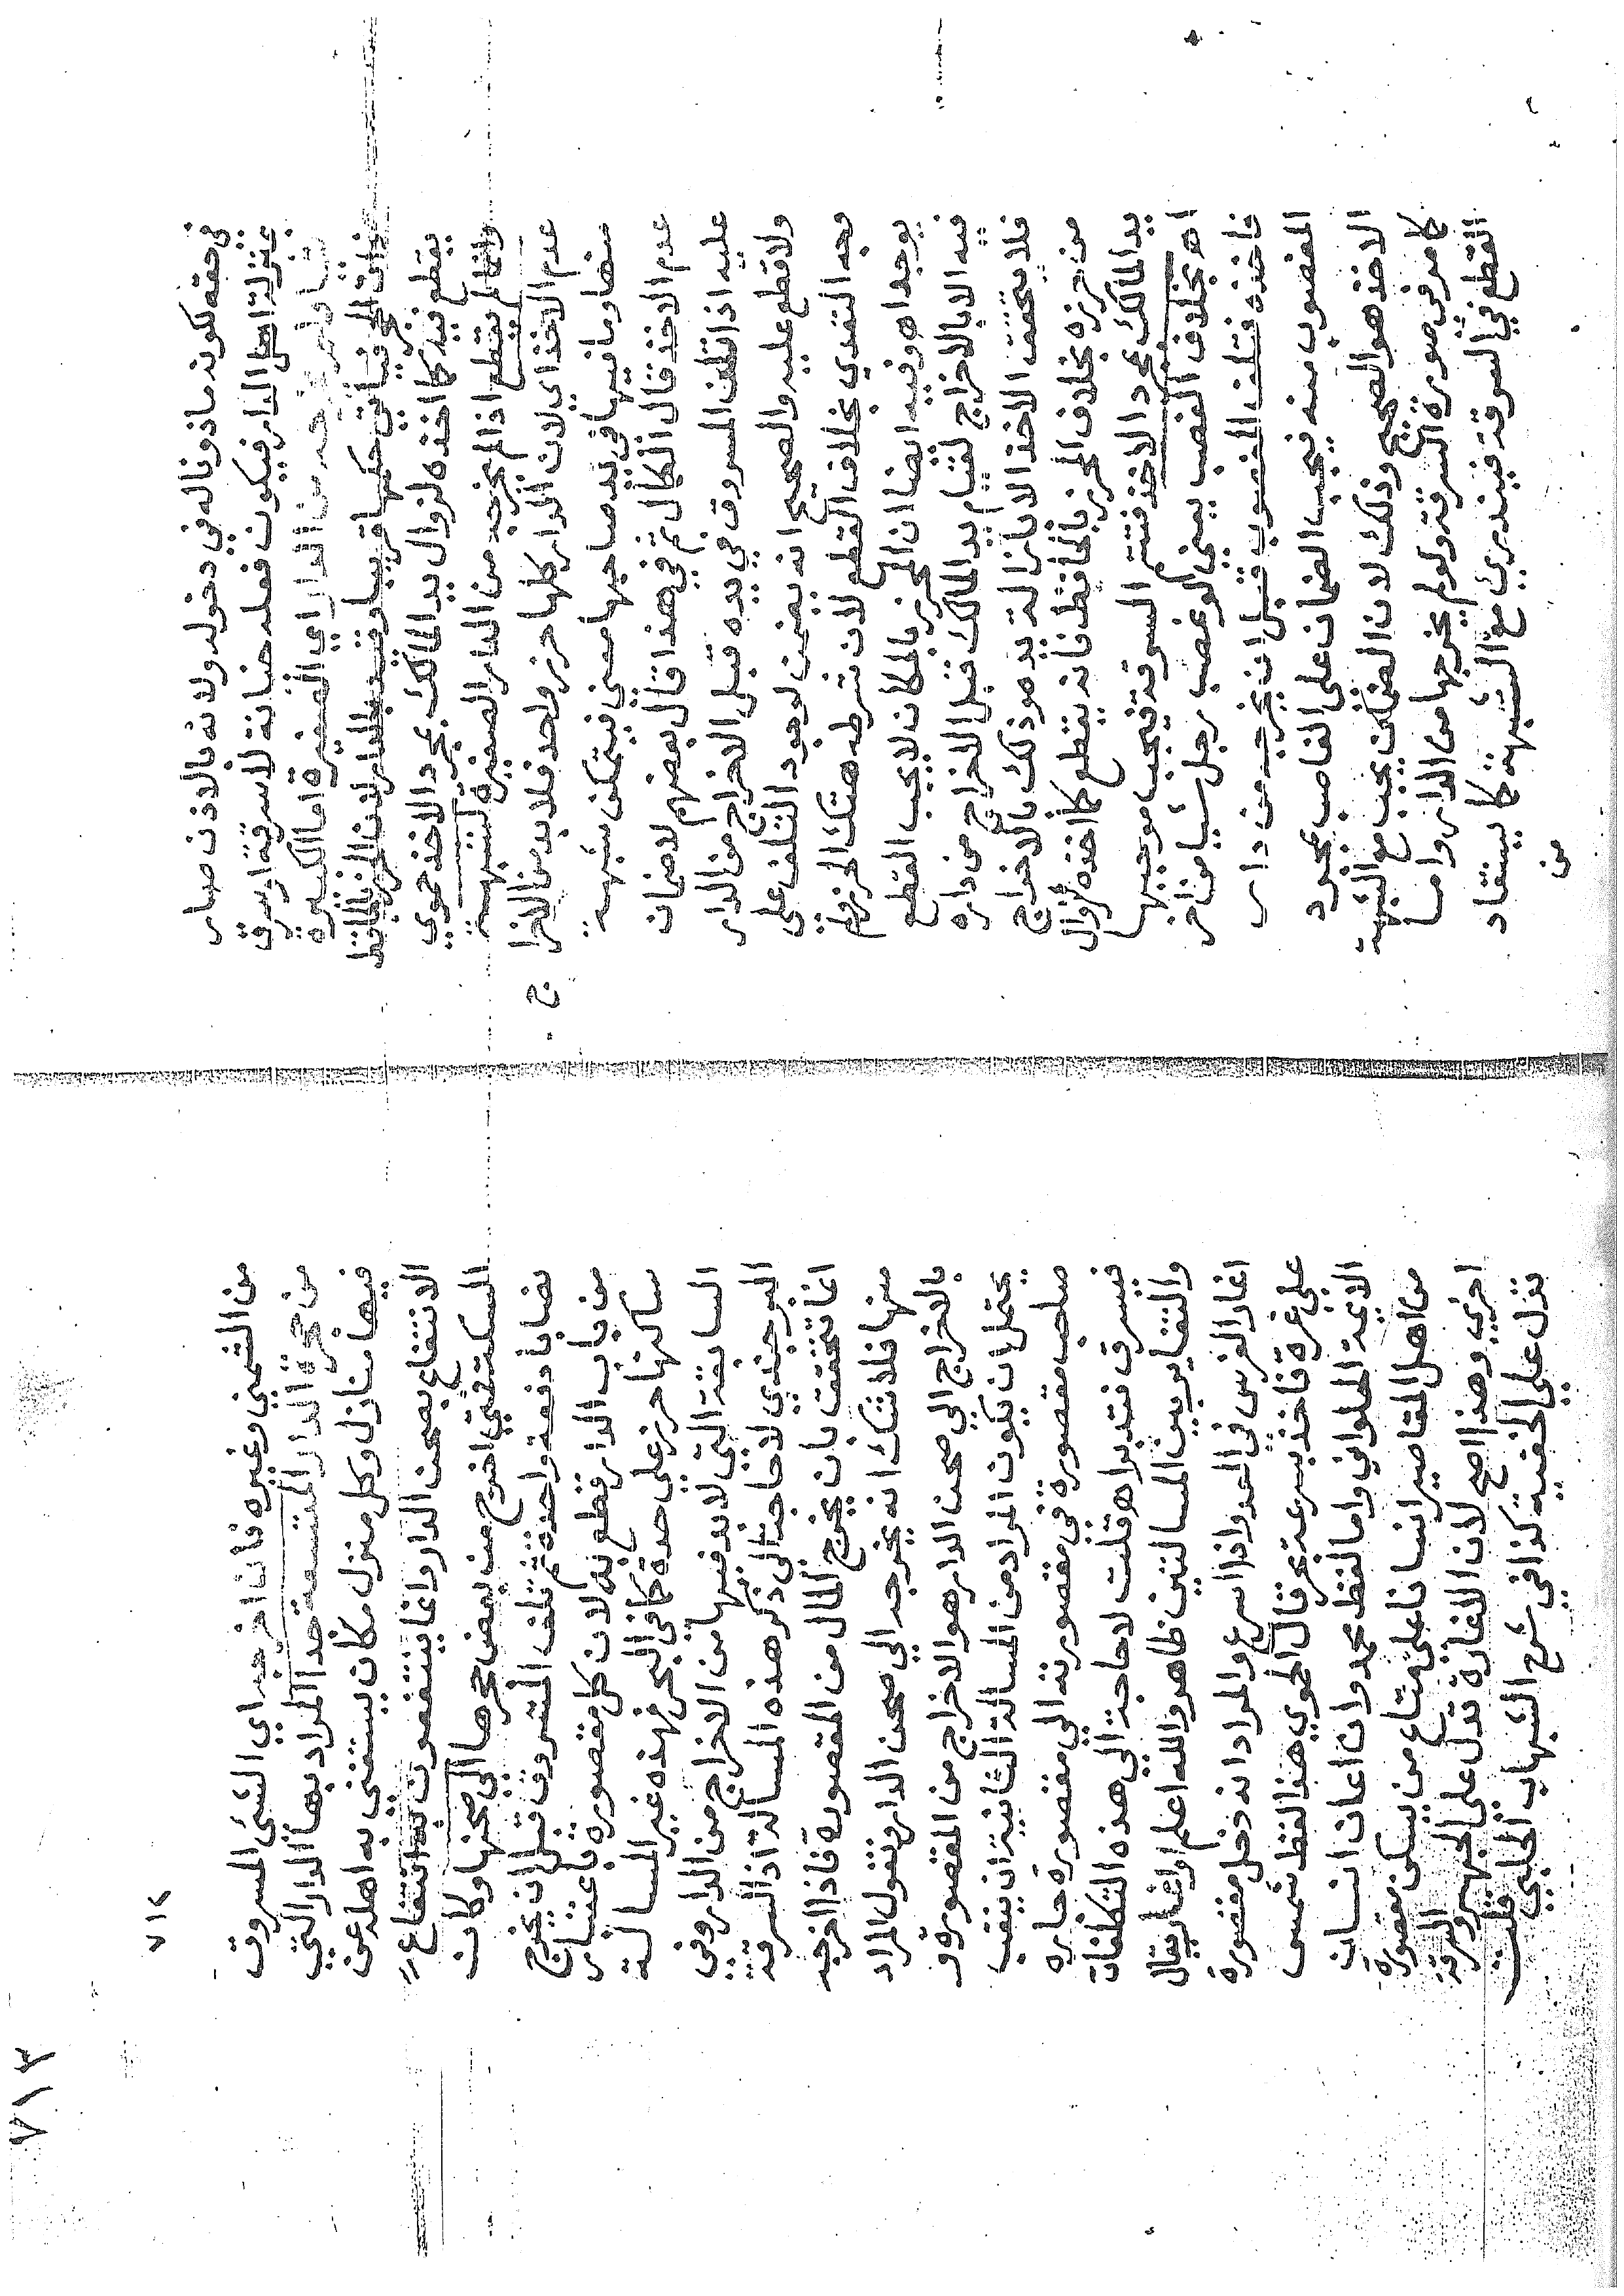 في حقه لكونه ماذونا له في دخوله ولانه بالاذن صار
بمنزلة اهل الدار فيكون فعله خيانة لا سرقة او سرق
شيا ولم يخرجه من الدار اي الصغيرة اما الكبيرة
ذات الحجر فياتي حكمها قريبا وقيد بالدار لان الحرز بالحافظ
يقطع فيه كما اخذه لزوال يد المالك بمجرد الاخذ حموي
وانما لم يقطع اذا لم يخرجه من الدار الصغيرة لشبهة
عدم الاخذ اي لان الدار كلها حرز واحد فلا بد من الاخراج
منها وما فيها في يد صاحبها معنى فيتمكن شبهة
عدم الاخذ قال الكمال ثم في هذا قال بعضهم لا ضمان
عليه اذا تلف المسروق في يده قبل الاخراج من الدار
ولا قطع عليه والصحيح انه يضمن لوجود التلف على
وجه التعدي بخلاف القطع لان شرطه هتك الحرز ولم
يوجد اهـ وفيه ايضا ان الحرز بالمكان لا يجب القطع
فيه الا بالاخراج لقيام يد المالك قبل الاخراج من داره
فلا يتحقق الاخذ الا بازالة يده وذلك بالاخراج
من حرزه بخلاف الحرز بالحافظ فانه يقطع كما اخذه لزوال
يد المالك بمجرد الاخذ فتتم السرقة فيجب موجبها
اهـ بخلاف الغصب يعني لو غصب رجل شيا من اخر
فاخذه فتلف المغصوب قبل ان يخرجه من دار
المغصوب منه فيجب الضمان على الغاصب بمجرد
الاخذ هو الصحيح وذلك لان الضمان يجب مع الشبهة
كما مر في صورة السرقة ولو لم يخرجها من الدار واما
القطع في السرقة فيندرئ مع الشبهة كما يستفاد
من
٧١٣
من الشمني وغيره فان اخرجه اي الشئ المسروق
من حجرة الدار المتسعة جدا المراد بها الدار التي
فيها منازل وكل منزل مكان يستغني به اهله عن
الانتفاع بصحن الدار وانما ينتفعون به انتفاع
السكة فمتى اخرج منه بعض حجرها الى صحنها وكان
نصابا دفعة واحدة ثم تلف المسروق قبل ان يخرج
من باب الدار قطع به لان كل مقصورة باعتبار
ساكنها حرز على حدة كما في البحر فهذه غير المسالة
السابقة التي لابد فيها من الاخراج من الدار وفي
البرجندي لا حاجة الى ذكر هذه المسالة اذ السرقة
انما تتحقق بان يخرج المال من المقصورة فاذا اخرجه
منها فلا شك انه يخرجه الى صحن الدار ونقول المراد
بالاخراج الي صحن الدار هو الاخراج من المقصورة و
يحتمل ان يكون المراد من المسالة الثانية ان ينقب
صاحب مقصورة في مقصورته الي مقصورة جاره
فيسرق فتدبر اهـ قلت لا حاجة الي هذه التكلفات
والتغاير بين المسالتين ظاهر والله اعلم او اغار يقال
اغار الفرس في العدو اذا اسرع والمراد انه دخل مقصورة
على غرة فاخذ بسرعة بحر قال الحموي هذا لفظ شمس
الايمة الحلواني واما لفظ محمد وان اعان انسان
من اهل المقاصير انسانا على متاع من يسكن مقصورة
اخرى وهذا اصح لان الاغارة تدل على الجهر والسرقة
تدل على الخفية كذا في شرح الشهاب الحلبي قلت
٧١٣